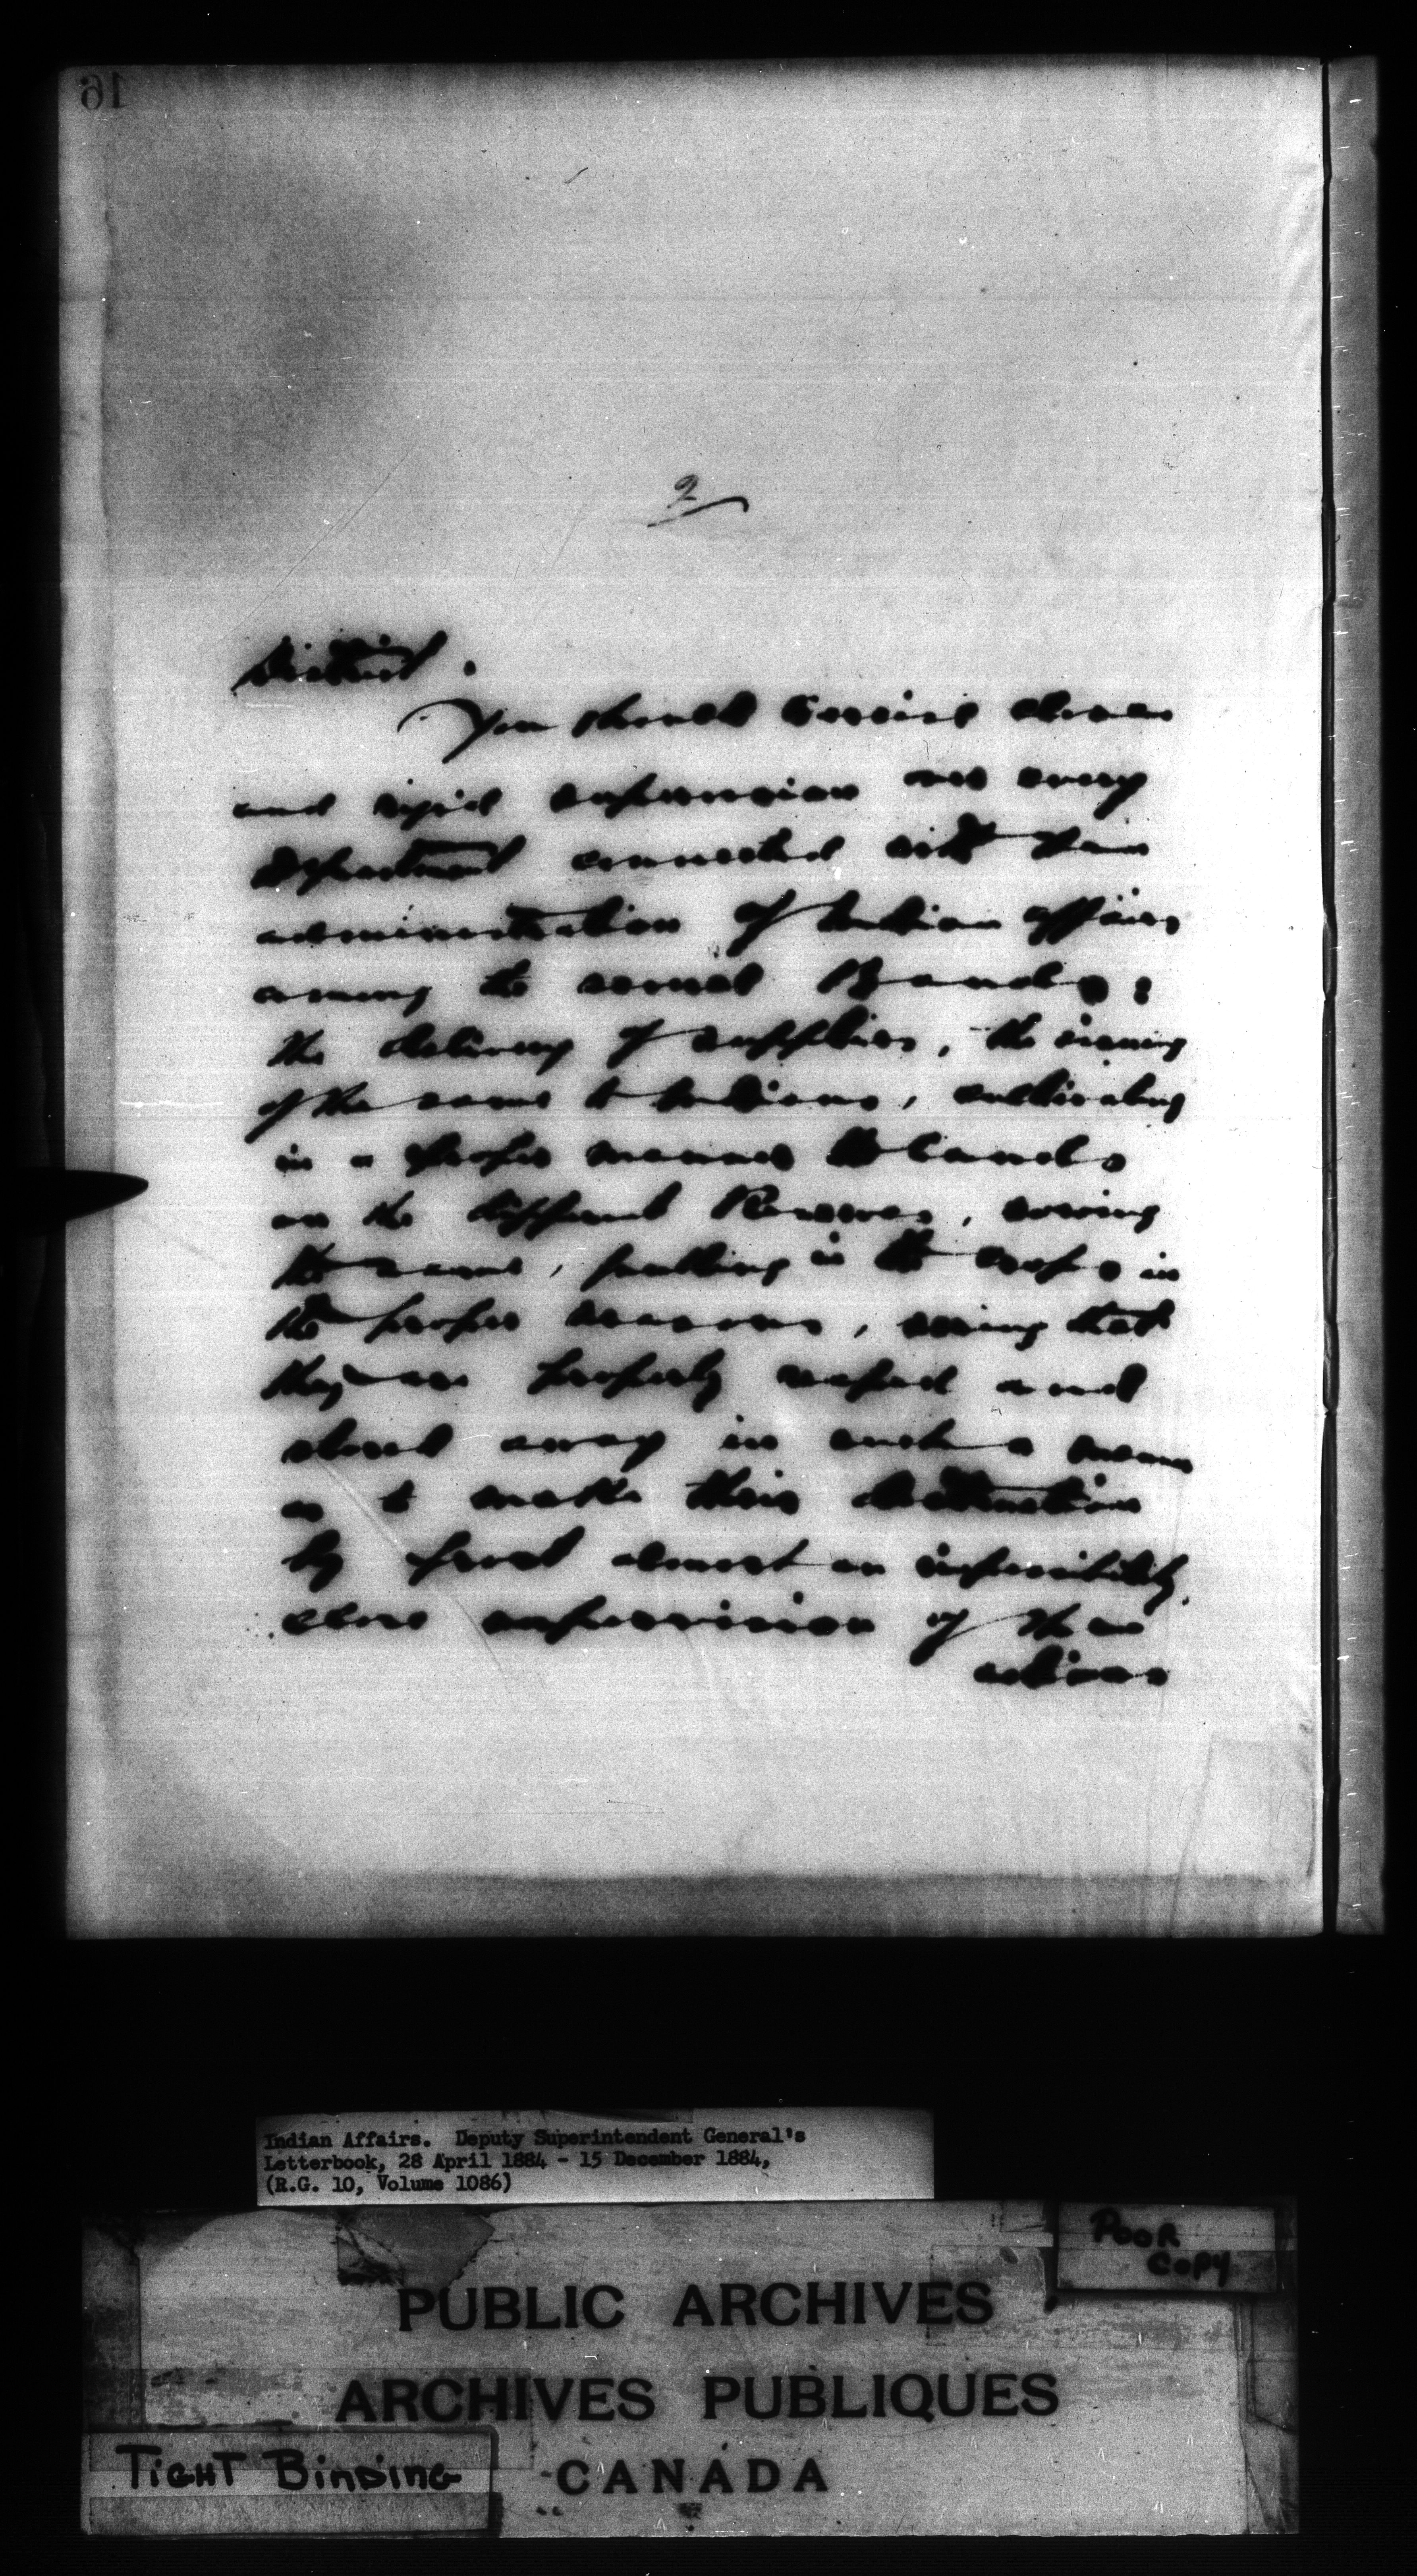 16
2
District.
You should exercise close
and rigid supervision over every
Department connected with the
administration of Indian affairs
among the several Bands;
the delivery of supplies, the issuing
of the same to Indians, cultivating
in a proper manner the lands
on the different Reserves, sowing
the same, putting in the crops in
the proper seasons, seeing that
they are properly reaped and
stored away in such a manner
as to make their destruction
by frost almost an impossibility,
close supervision of the
actions
Indian Affairs. Deputy Superintendent General's
Letterbook, 28 April 1884 - 15 December 1884,
(R.G. 10, Volume 1086)
POOR
COPY
PUBLIC ARCHIVES
ARCHIVES PUBLIQUES
CANADA
TIGHT BINDING